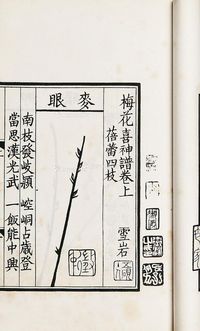 梅花喜神譜卷上
蓓蕾四枝
雪岩
麥眼
南枝發岐穎
崆峒占歲登
當思漢光武
一飯能中興